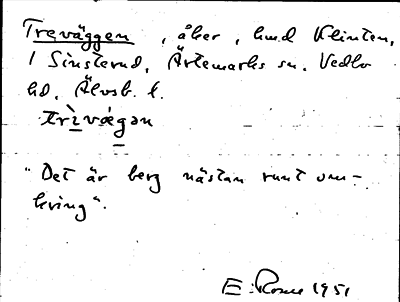 Treväggen, åker, hmd Klinten,
1 Sinsterud, Ärtemarks sn. Vedbo
hd. Älvsb. l.
trìvǽgan
"Det är berg nästan runt om-
kring".
E. Rosen 1951